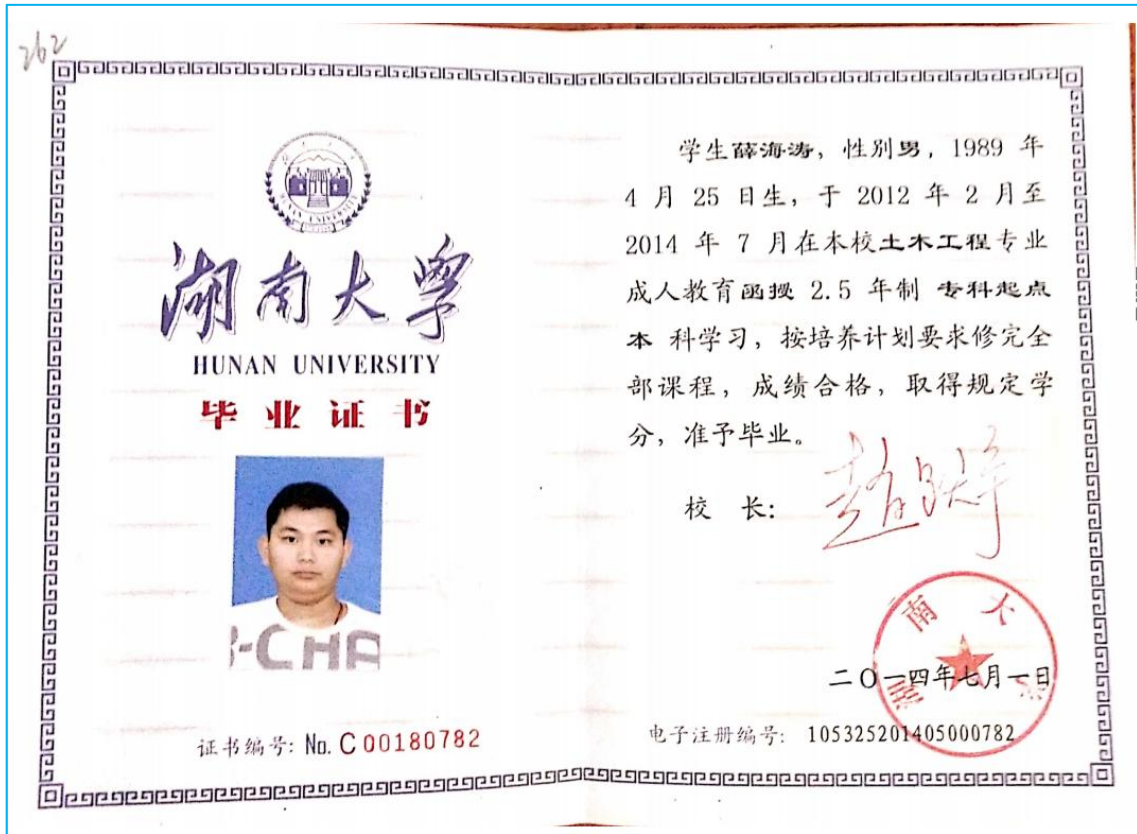 262
湖南大学
HUNAN UNIVERSITY
HUNAN UNIVERSITY
毕业证书
-CHA
证书编号: No. C 00180782
学生薛海涛，性别男，1989 年
4 月 25 日生，于 2012 年 2 月至
2014 年 7 月在本校土木工程专业
成人教育函授 2.5 年制 专科起点
本 科学习，按培养计划要求修完全
部课程，成绩合格，取得规定学
分，准予毕业。
校 长:
南大
二〇一四年七月一日
电子注册编号: 105325201405000782